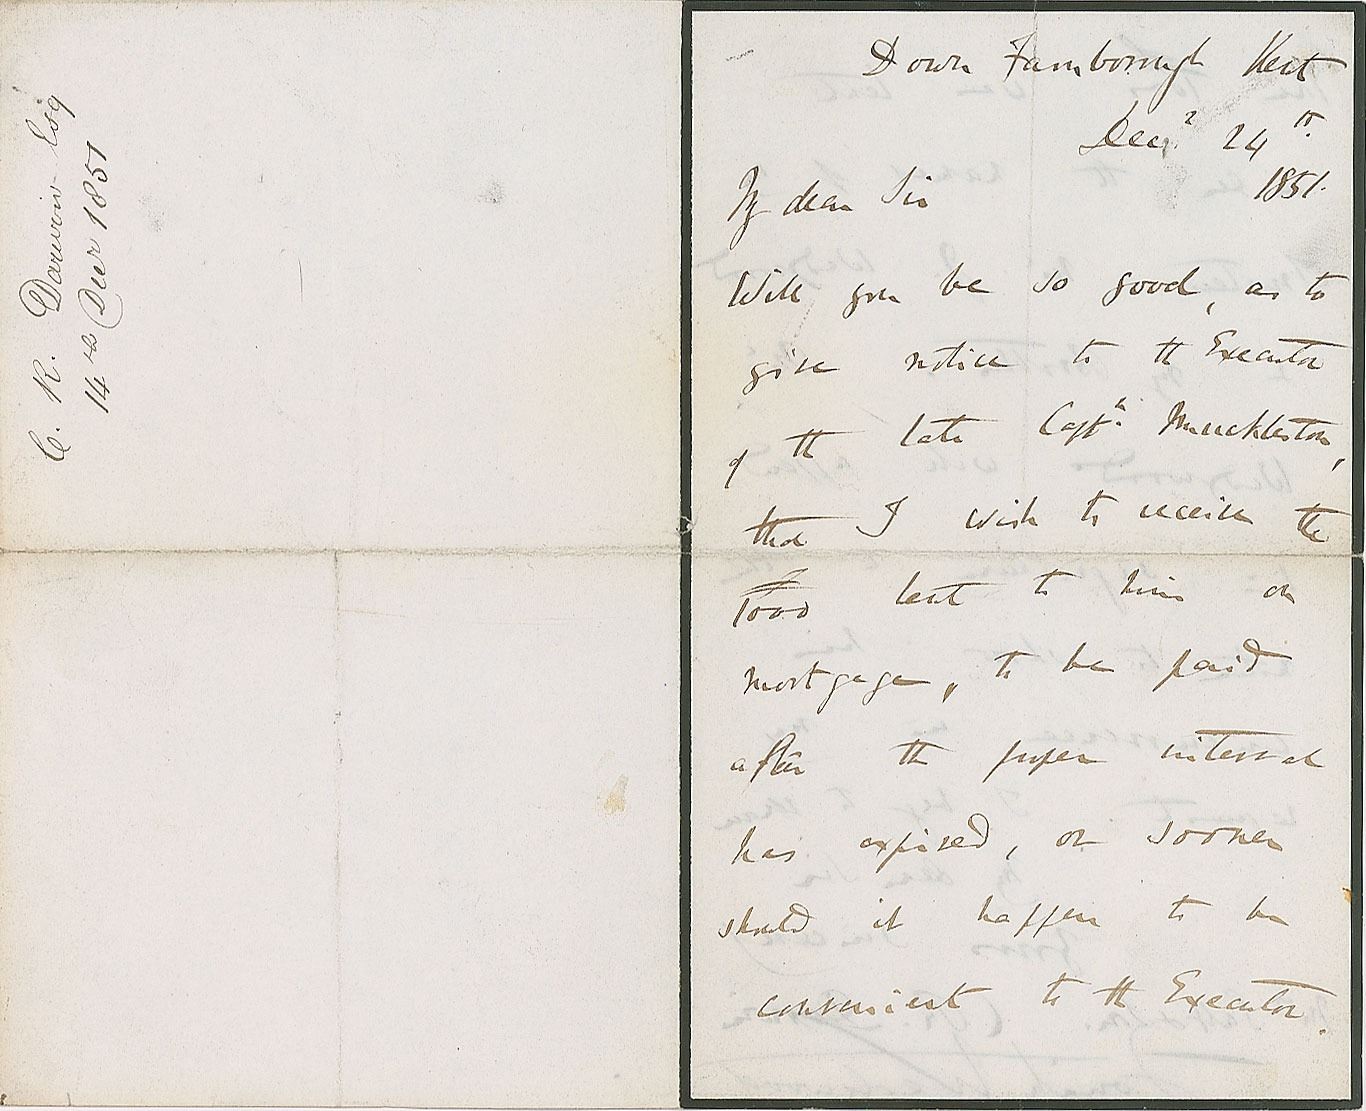 C. R. Darwin Esq
14th Decr 1851
Down Farnborough Kent
Decr 24th
1851.
My dear Sir
Will you be so good, as to
give notice to the Executor
of the late Captn. Muckleston,
that I wish to receive the
£1000 lent to him on
mortgage, to be paid
after the proper interval
has expired, or sooner
should it happen to be
convenient to the Executor.